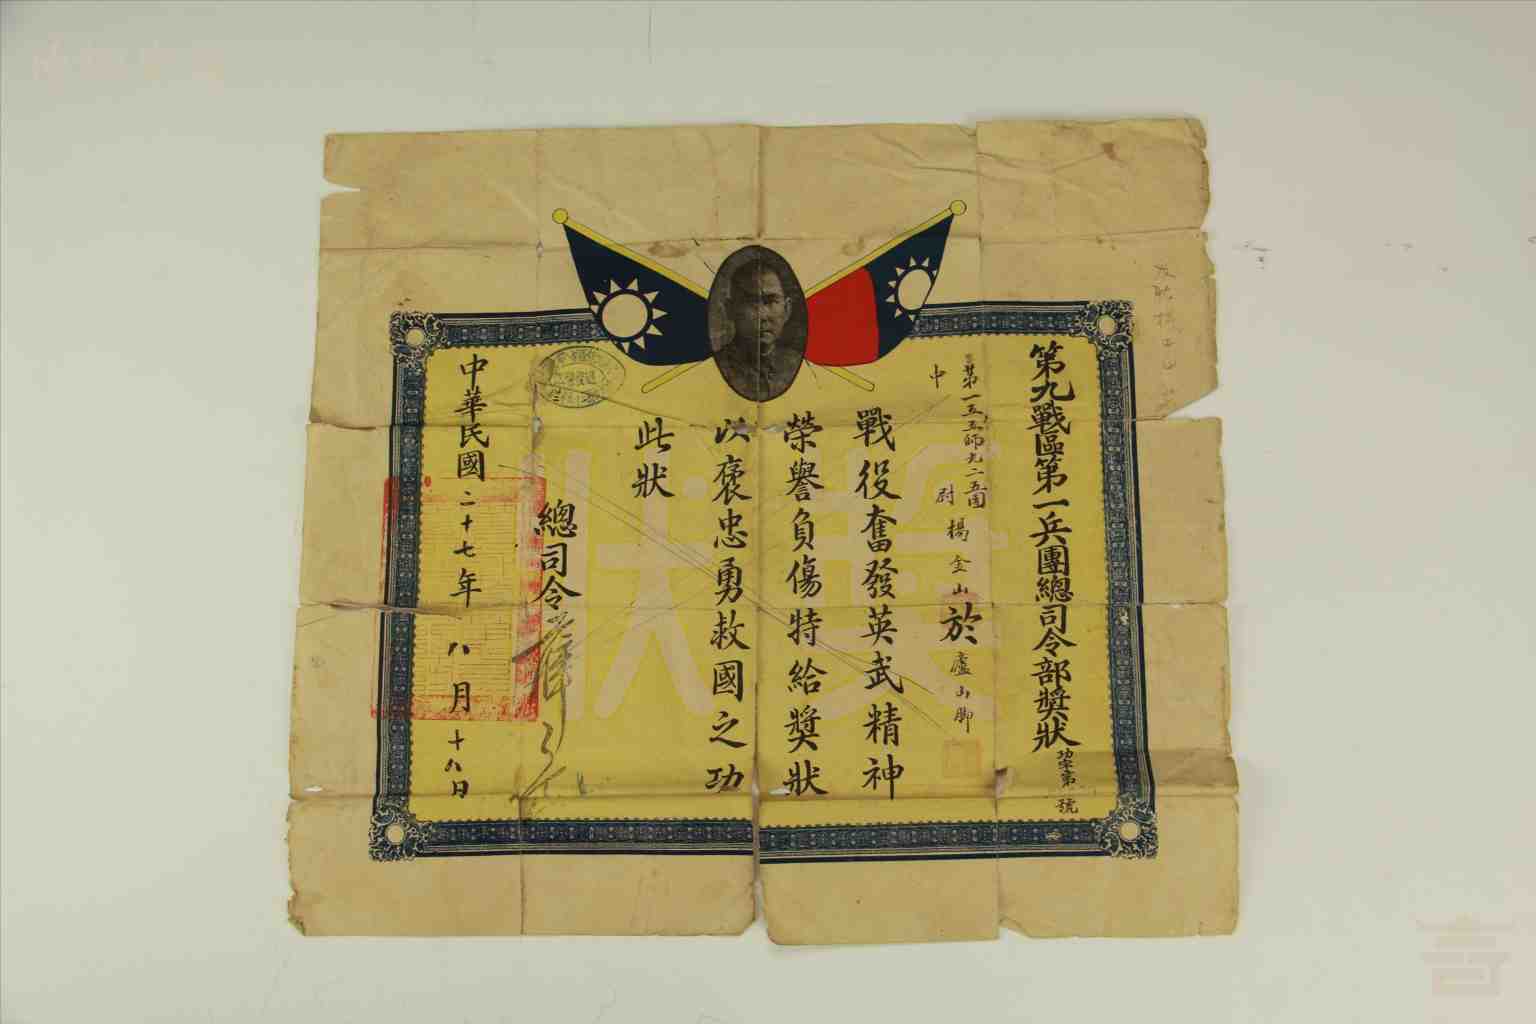 第九戰區第一兵團總司令部獎狀
功字第 號
第一五五師九二五團
中尉楊金山於廬山脚
戰役奮發英武精神
榮譽負傷特給獎狀
以褒忠勇救國之功
此狀
總司令
中華民國二十七年八月十八日
獎狀